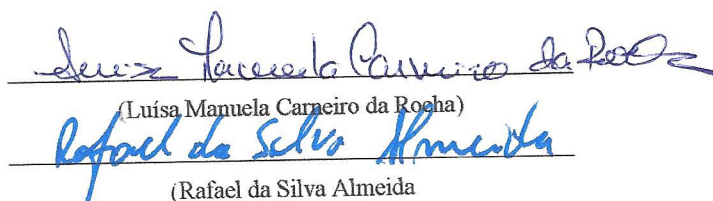 Luísa Manuela Carneiro da Rocha
(Luísa Manuela Carneiro da Rocha)
Rafael da Silva Almeida
(Rafael da Silva Almeida